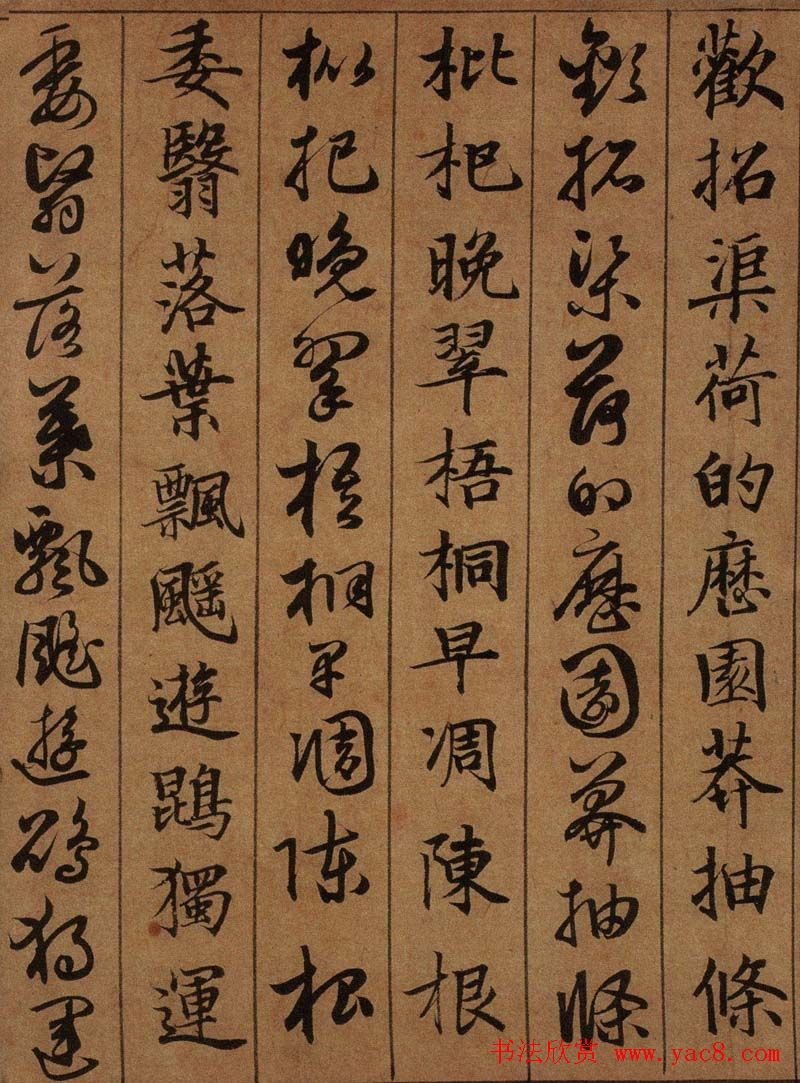 歡招渠荷的歷園莽抽條
歡招渠荷的歷園莽抽條
枇杷晚翠梧桐早凋陳根
枇杷晚翠梧桐早凋陳根
委翳落葉飄颻遊鵾獨運
委翳落葉飄颻遊鵾獨運
书法欣赏 www.yac8.com